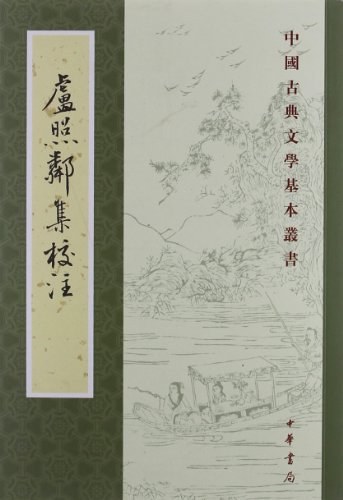 中國古典文學基本叢書
盧照鄰集校注
中華書局